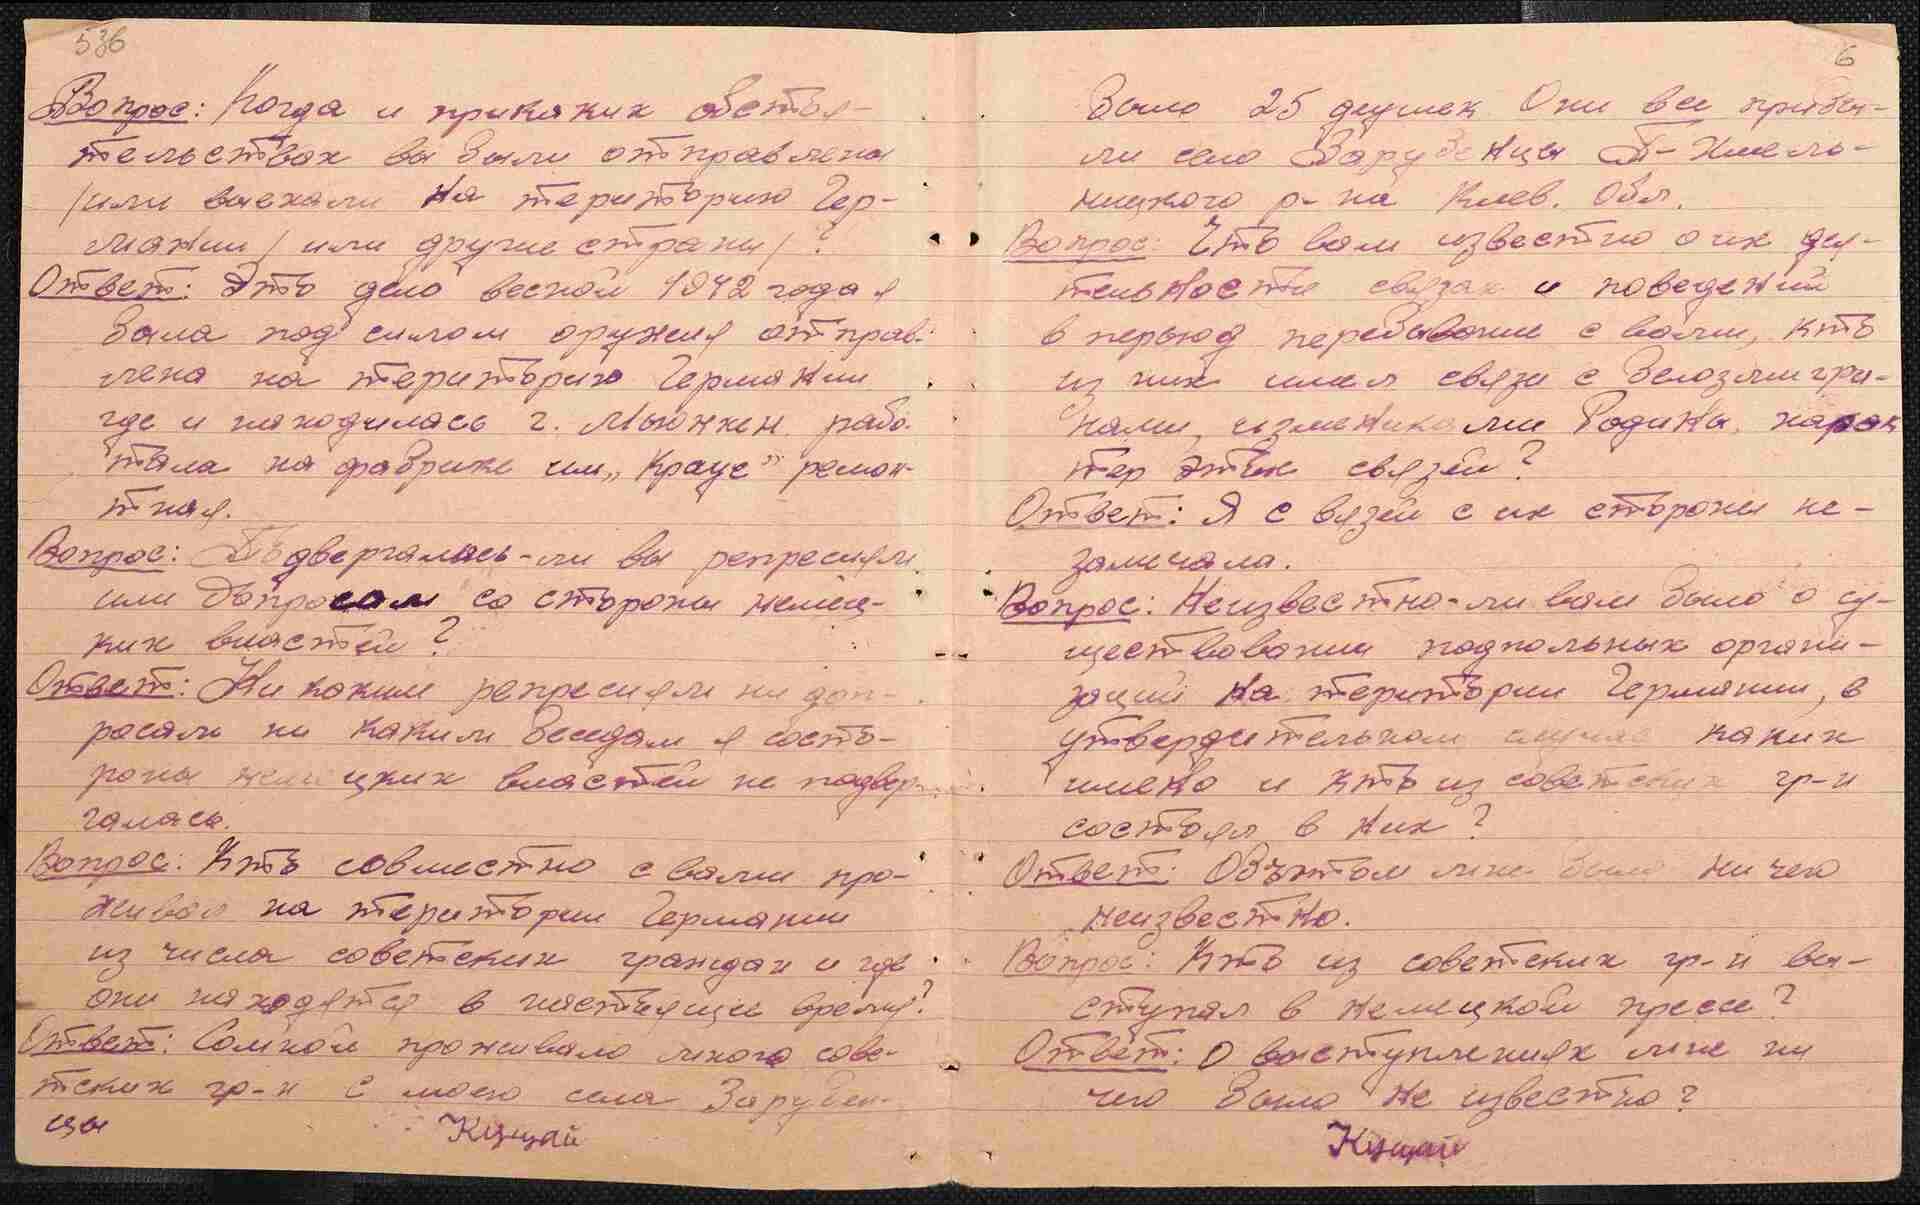 536
Вопрос: Когда и прикаких обстоя-
тельствах вы были отправлены
/или выехали на територию Гер-
мании/ или другие страны/?
Ответ: Это дело весной 1942 года я
была под силом оружия отправ-
лена на територию Германии
где и находилась г. Мьюнхен рабо-
тала на фабрике им „Краус" ремон-
тная.
Вопрос: Подвергались-ли вы репресиям
или допросам со стороны немец-
ких властей?
Ответ: Ни каким репресиям ни доп-
росам ни каким беседам я состо-
роны немецких властей не подвер-
галась.
Вопрос: Кто совместно с вами про-
живал на територии Германии
из числа советских граждан и где
они находятся в настоящие время?
Ответ: Сомной проживало много сове-
тских гр-н с моего села Зарубен-
цы
Куцай
6
было 25 деушек Они все прибы-
ли село Зарубенцы П-Хмель-
ницкого р-на Киев. Обл.
Вопрос: Что вам известно о их дея-
тельности связах и поведений
в перьюд перебывание с вами, кто
из них имел связи с белоэмигра-
нами, изменниками Родины, харак
тер этих связей?
Ответ: Я с вязей с их стороны не-
замичала.
Вопрос: Неизвестно-ли вам было о су-
ществовании подпольных органи-
заций на територии Германии, в
утвердительном случае каких
имено и кто из советских гр-н
состоял в них?
Ответ: Обэтом мне было ни чего
неизвестно.
Вопрос: Кто из советских гр-н вы-
ступал в немецкой пресе?
Ответ: О выступлениях мне ни
чего было не известно?
Куцай